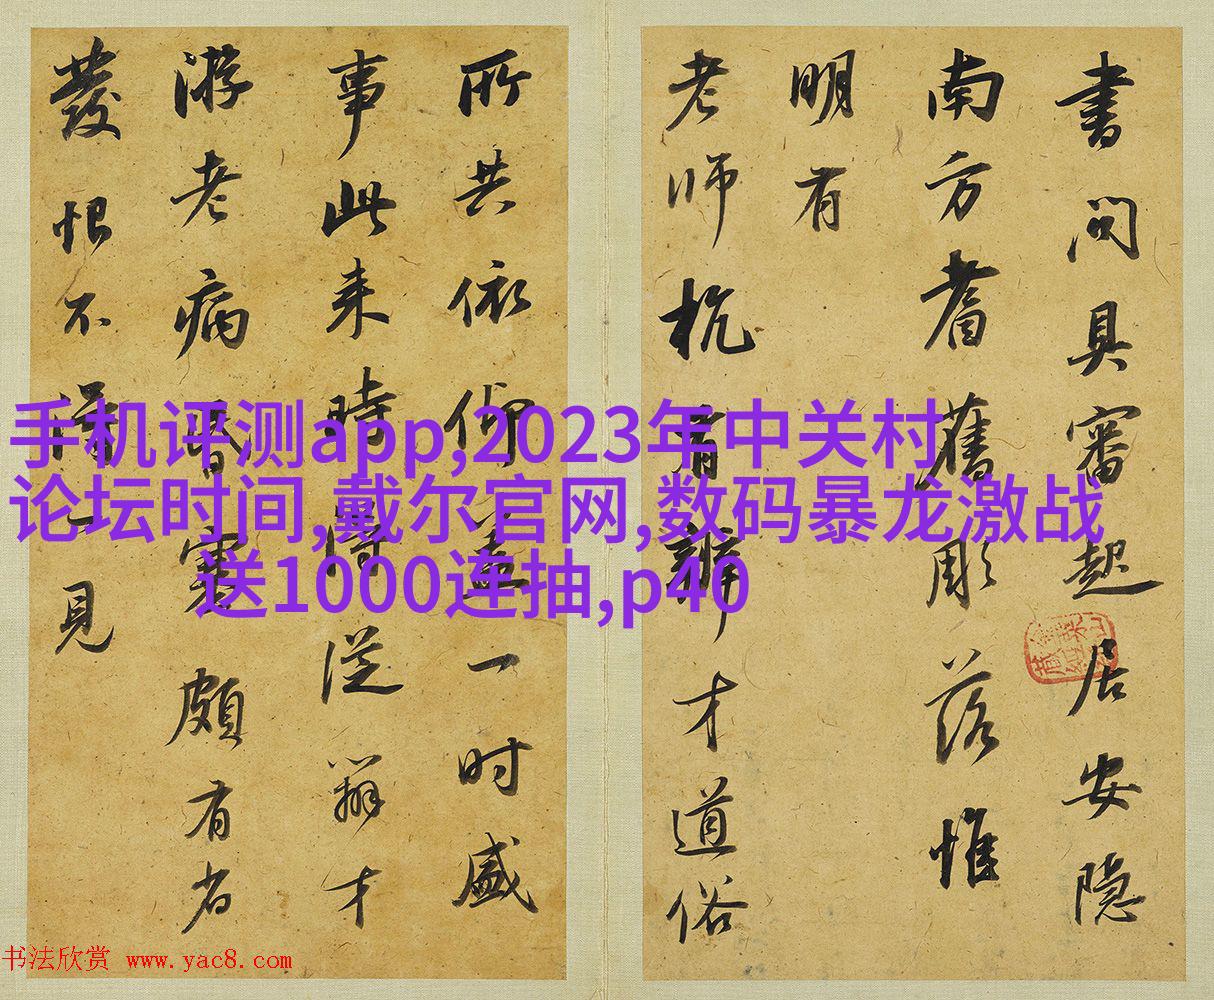 書問具審起居安隱
南方耆舊彫落惟
明有
老師杭有辯才道俗
所共依仰蓋一時盛
事此来時得從辯才
游老病昏塞頗有省
發恨不得一見
手机评测app,2023年中关村
论坛时间,戴尔官网,数码暴龙激战
送1000连抽,p40
书法欣赏 www.yac8.com